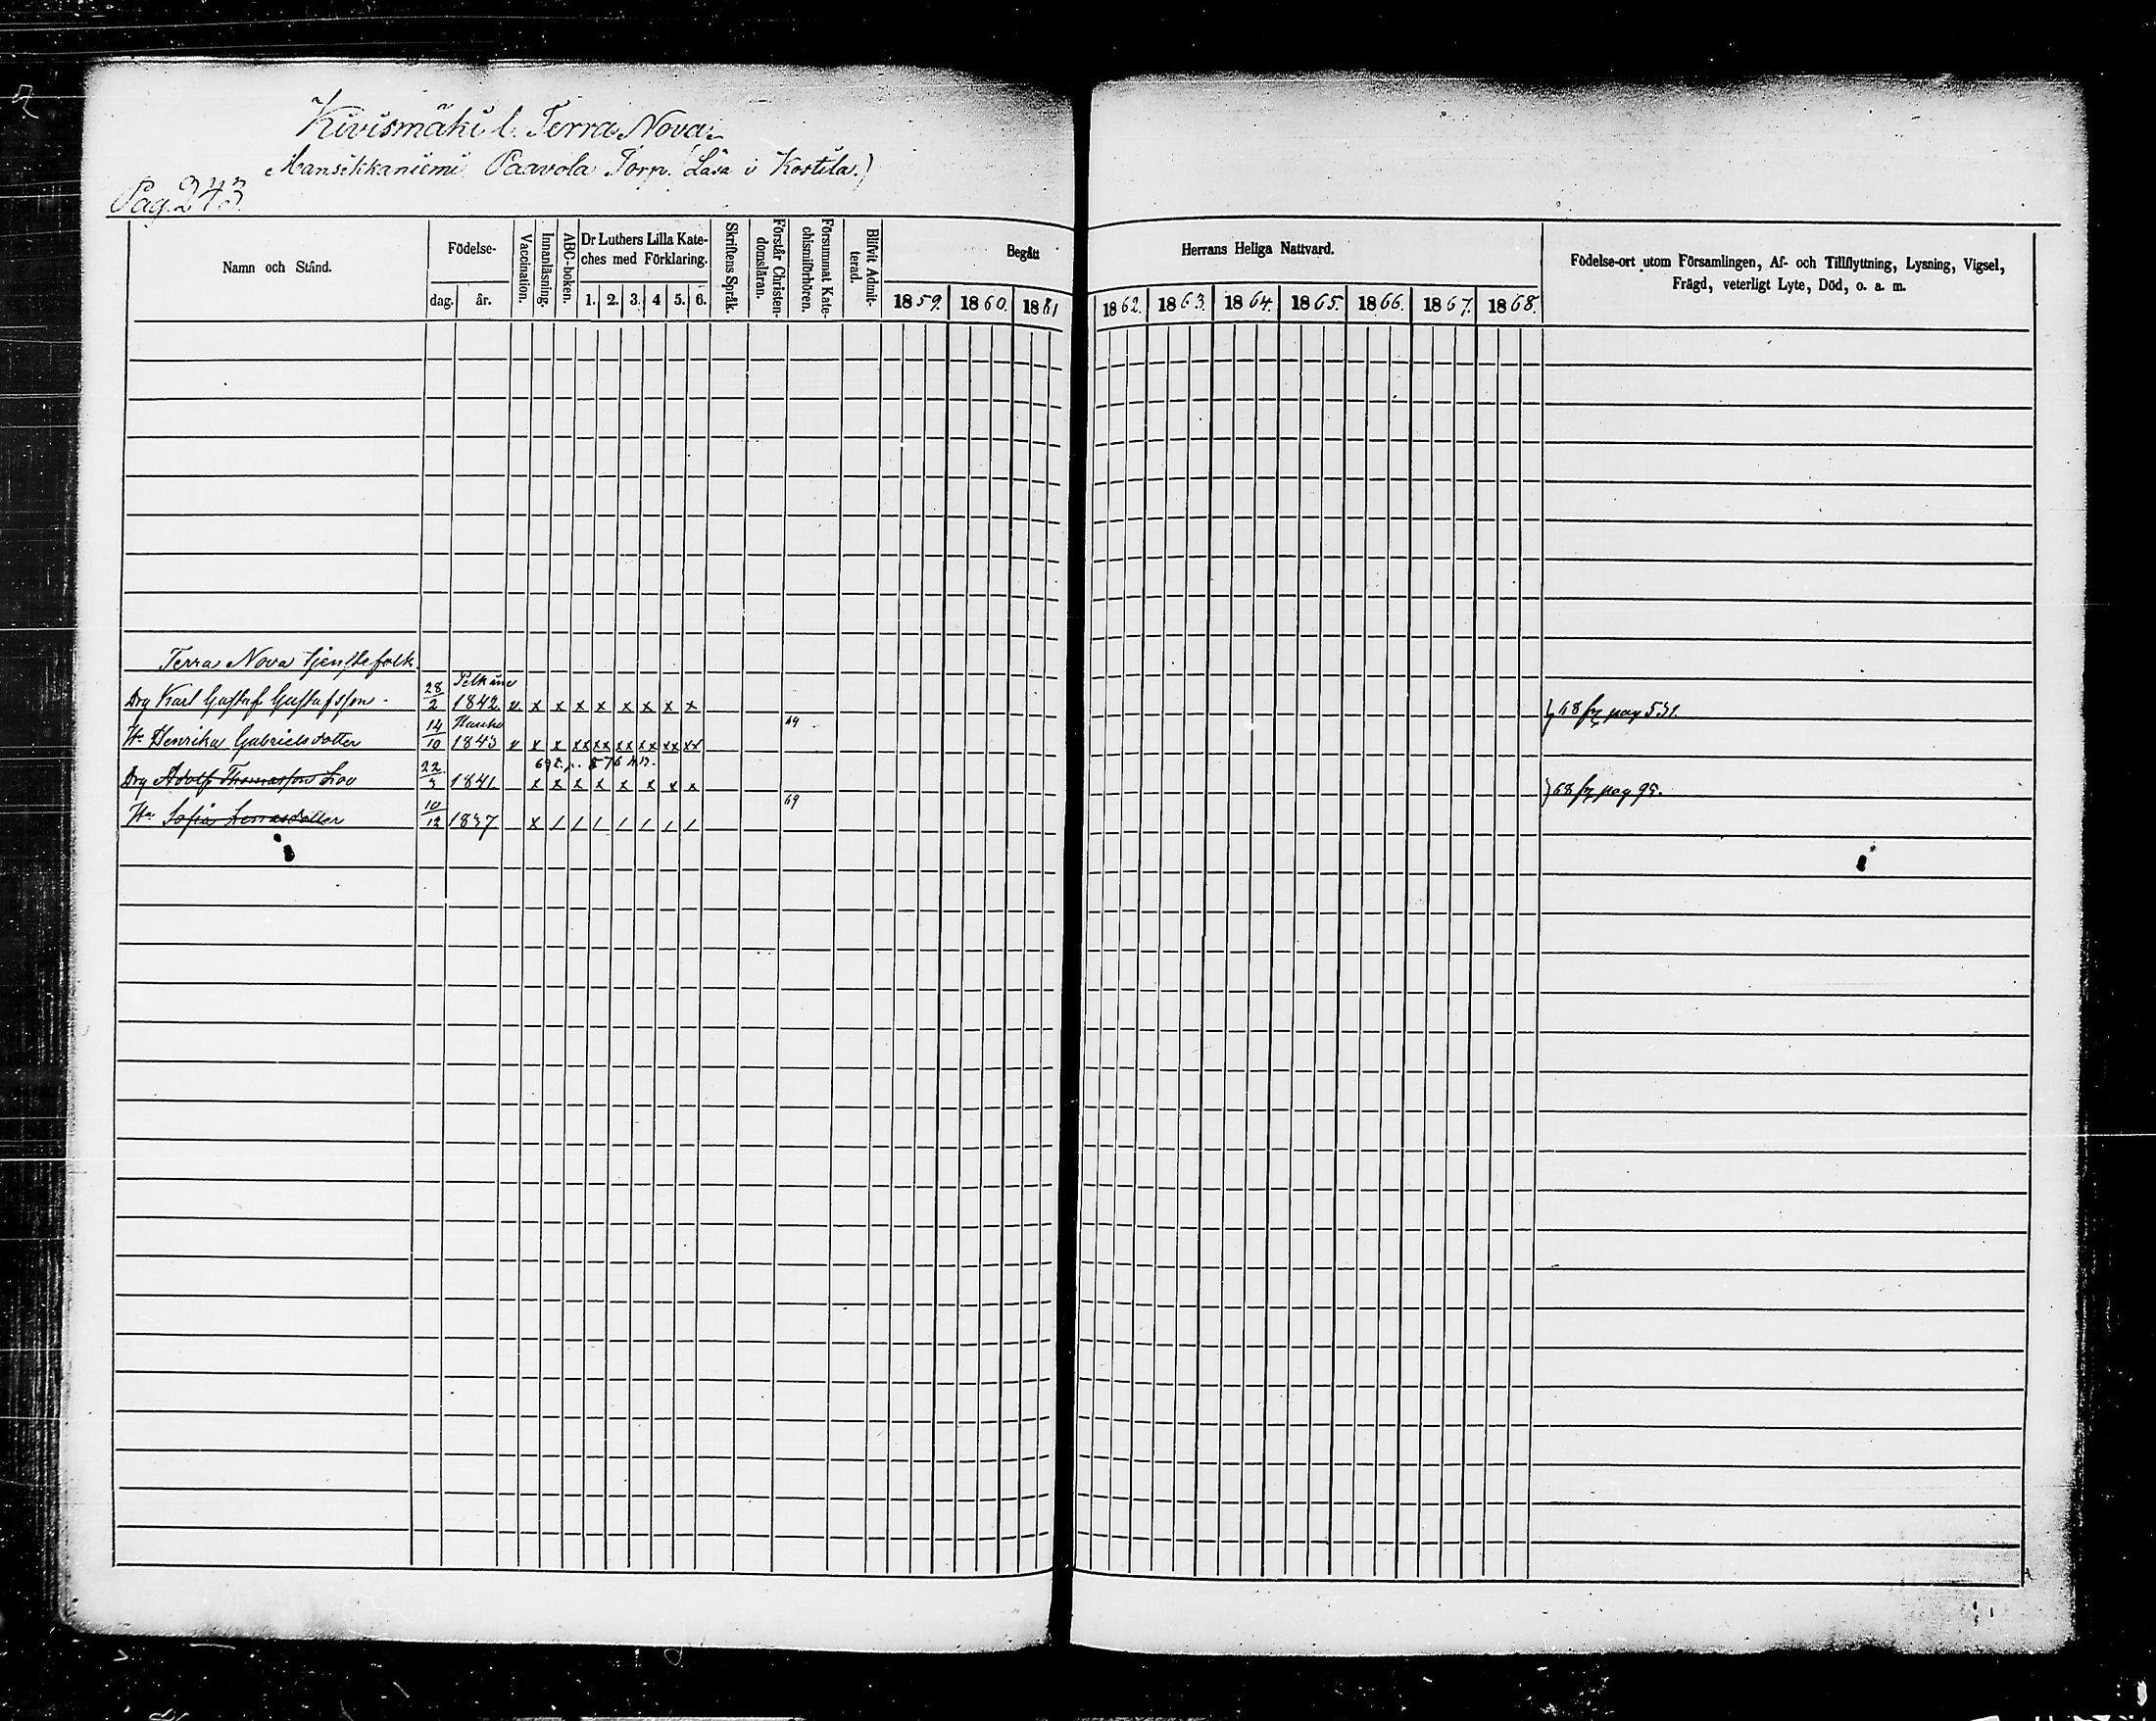 Kivismäki l. Terra Nova
Mansikkaniemi Paavola Torp. (Läsa i Kostila.)
Pag. 243.
Namn och Stånd.
Födelse-
dag. år.
Vaccination.
Innanläsning.
ABC-boken.
Dr Luthers Lilla Kate-
ches med Förklaring.
1. 2. 3. 4 5. 6.
Skriftens Språk.
Förstår Christen-
domsläran.
Försummat Kate-
chismiförhören.
Blifvit Admit-
terad.
Begått Herrans Heliga Nattvard.
1859. 1860. 1861 1862. 1863. 1864. 1865. 1866. 1867. 1868.
Födelse-ort utom Församlingen, Af- och Tillflyttning, Lysning, Vigsel,
Frägd, veterligt Lyte, Död, o. a. m.
Terra Nova tjenstefolk.
Pelkäne
Drg Karl Gustaf Gustafsson 28/2 1842 v x x x x x x x x } 68 fr pag 531.
Hauho 69
Hu Henrika Gabrielsdotter 14/10 1843 v x x xx xx xx xx xx xx
Drg Adolf Thomasson 22 1841 x x x x x x x x } 68 fr pag 95.
69
Hu Sofia 10/12 1837 x / / / / / / /